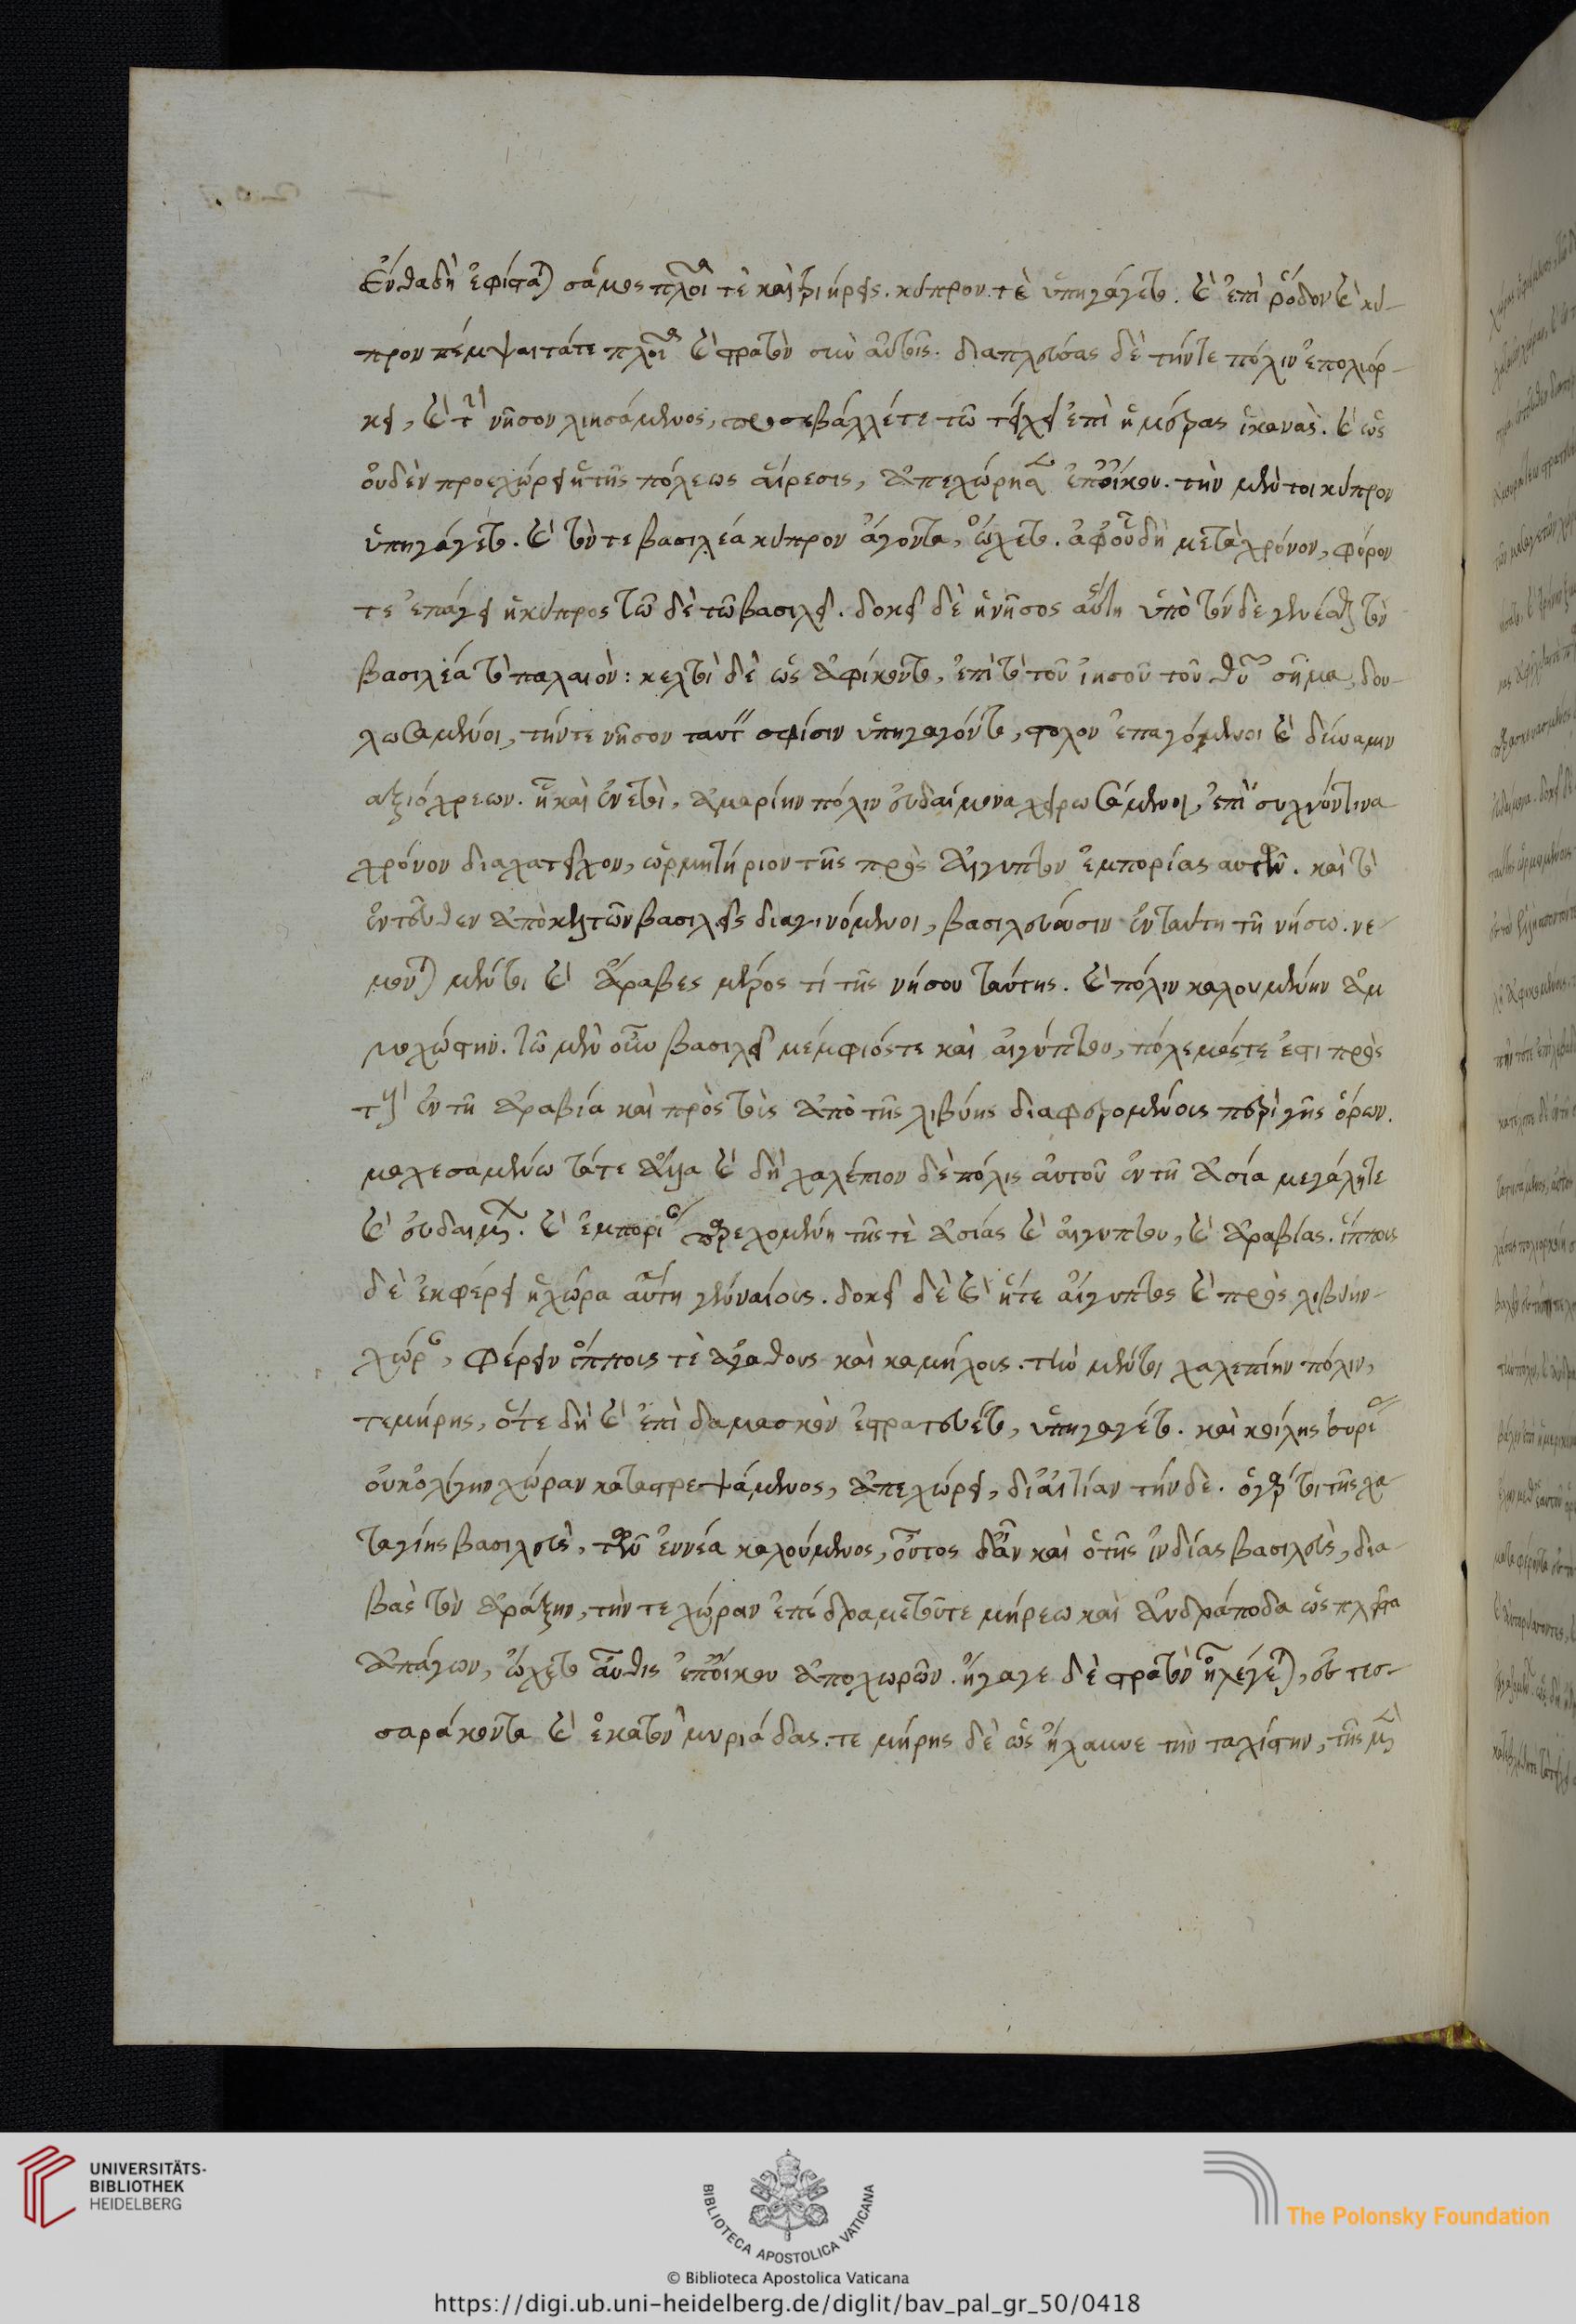 ἐνθαδὴ ἐφίσταται σάμος πλοῖά τὲ καὶ τριήρεις. κύπρον τὲ ὑπηγάγετο. καὶ ἐπὶ ῥόδον καὶ κύ-
προν πέμψαι τάτε πλοῖα καὶ στρατὸν σὺν αὐτοῖς. διαπλεύσας δὲ τήντε πόλιν ἐπολιόρ-
κει, καὶ τὴν νῆσον ληησάμενος, προσεβάλλέτε τῶ τείχει ἐπὶ ἡμέρας ἱκανὰς. καὶ ὡς
οὐδὲν προεχώρει ἡ τῆς πόλεως αἵρεσις, ἀπεχώρησεν ἐπ' οἴκου. τὴν μέντοι κύπρον
ὑπηγάγετο. καὶ τόντε βασιλέα κύπρον ἄγοντα, ᾤχετο. ἀφοῦ δὴ μετὰ χρόνον, φόρον
τε ἐπάγει ἡ κύπρος τῶδε τῶ βασιλεῖ. δοκεῖ δὲ ἡ νῆσος αὕτη ὑπὸ τόνδε γενέσθαι τὸν
βασιλέα τὸ παλαιόν: κελτοὶ δὲ ὡς ἀφίκοντο, ἐπὶ τὸ τοῦ ἰησοῦ τοῦ θεοῦ σῆμα, δου-
λωσάμενοι, τήντε νῆσον ταύτην σφίσιν ὑπηγαγόντο, στόλον ἐπαγόμενοι καὶ δύναμιν
ἀξιόχρεων. ἧ καὶ ἐνετοὶ, ἀμαρίην πόλιν εὐδαίμονα χειρωσάμενοι, ἐπὶ συχνόντινα
χρόνον διακατεῖχον, ὡρμητήριον τῆς πρὸς αἴγυπτον ἐμπορίας αὐτῶν. καὶ τὸ
ἐντεῦθεν ἀπὸ κελτῶν βασιλεῖς διαγινόμενοι, βασιλεύουσιν ἐνταύτη τῆ νήσω. νέ-
μονται μέντοι καὶ ἄραβες μέρος τί τῆς νήσου ταύτης. καὶ πόλιν καλουμένην ἀμ
μοχώστην. τῶ μὲν οὖν βασιλεῖ μέμφιόστε καὶ αἰγύπτου, πόλεμόστε ἐστι πρὸς
τὴν ἐν τῆ ἀραβία καὶ πρὸς τοὺς ἀπὸ τῆς λιβύης διαφερομένοις περὶ γῆς ὅρων.
μαχεσαμένω τάτε ἄλλα καὶ δὴ χαλέπιον δὲ πόλις αὐτοῦ ἐν τῆ ἀσία μεγάλητε
καὶ εὐδαίμων. καὶ ἐμπορίαν παρεχομένη τῆστὲ ἀσίας καὶ αἰγύπτου, καὶ ἀραβίας. ἵππους
δὲ ἐκφέρει ἡ χώρα αὕτη γενναίους. δοκεῖ δὲ καὶ ἥτε αἴγυπτος καὶ πρὸς λιβύην
χώρα, φέρειν ἵππους τὲ ἀγαθοὺς καὶ καμήλους. τὴν μέντοι χαλεπίην πόλιν,
τεμήρης, ὅτε δὴ καὶ ἐπὶ δαμασκὸν ἐστρατεύετο, ὑπηγαγέτο. καὶ κοίλης συρίας
οὐκ ὀλίγην χώραν καταστρεψάμενος, ἀπεχώρει, δι' αἰτίαν τήνδε. ὁ γάρ τοι τῆς χα-
ταγίης βασιλεὺς, τῶν ἐννέα καλούμενος, οὗτος δ' ἂν καὶ ὁ τῆς ἰνδίας βασιλεὺς, δια-
βὰς τὸν ἀράξην, τήν τε χώραν ἐπέδραμε τοῦτε μήρεω καὶ ἀνδράποδα ὡς πλεῖστα
ἀπάγων, ᾤχετο αὖθις ἐπ' οἴκου ἀποχωρῶν. ἤγαγε δὲ στρατὸν ἧ λέγεται, ἐς τεσ-
σαράκοντα καὶ ἑκατὸν μυριάδας. τεμήρης δὲ ὡς ἤλαυνε τὴν ταχίστην, τῆς μὲν
UNIVERSITÄTS-
BIBLIOTHEK
HEIDELBERG
BIBLIOTECA APOSTOLICA VATICANA
The Polonsky Foundation
© Biblioteca Apostolica Vaticana
https://digi.ub.uni-heidelberg.de/diglit/bav_pal_gr_50/0418